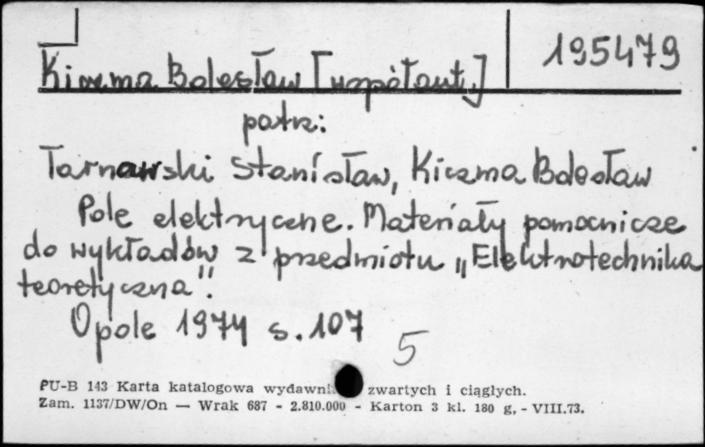 195479
Kiczma Bolesław [współaut.]
patrz:
Tarnawski Stanisław, Kiczma Bolesław
Pole elektryczne. Materiały pomocnicze
do wykładów z przedmiotu „Elektrotechnika
teoretyczna".
Opole 1974 s. 107
5
PU-B 143 Karta katalogowa zwartych i ciągłych.
Zam. 1137/DW/On — Wrak 687 - 2.810.000 - Karton 3 kl. 180 g, - VIII.73.